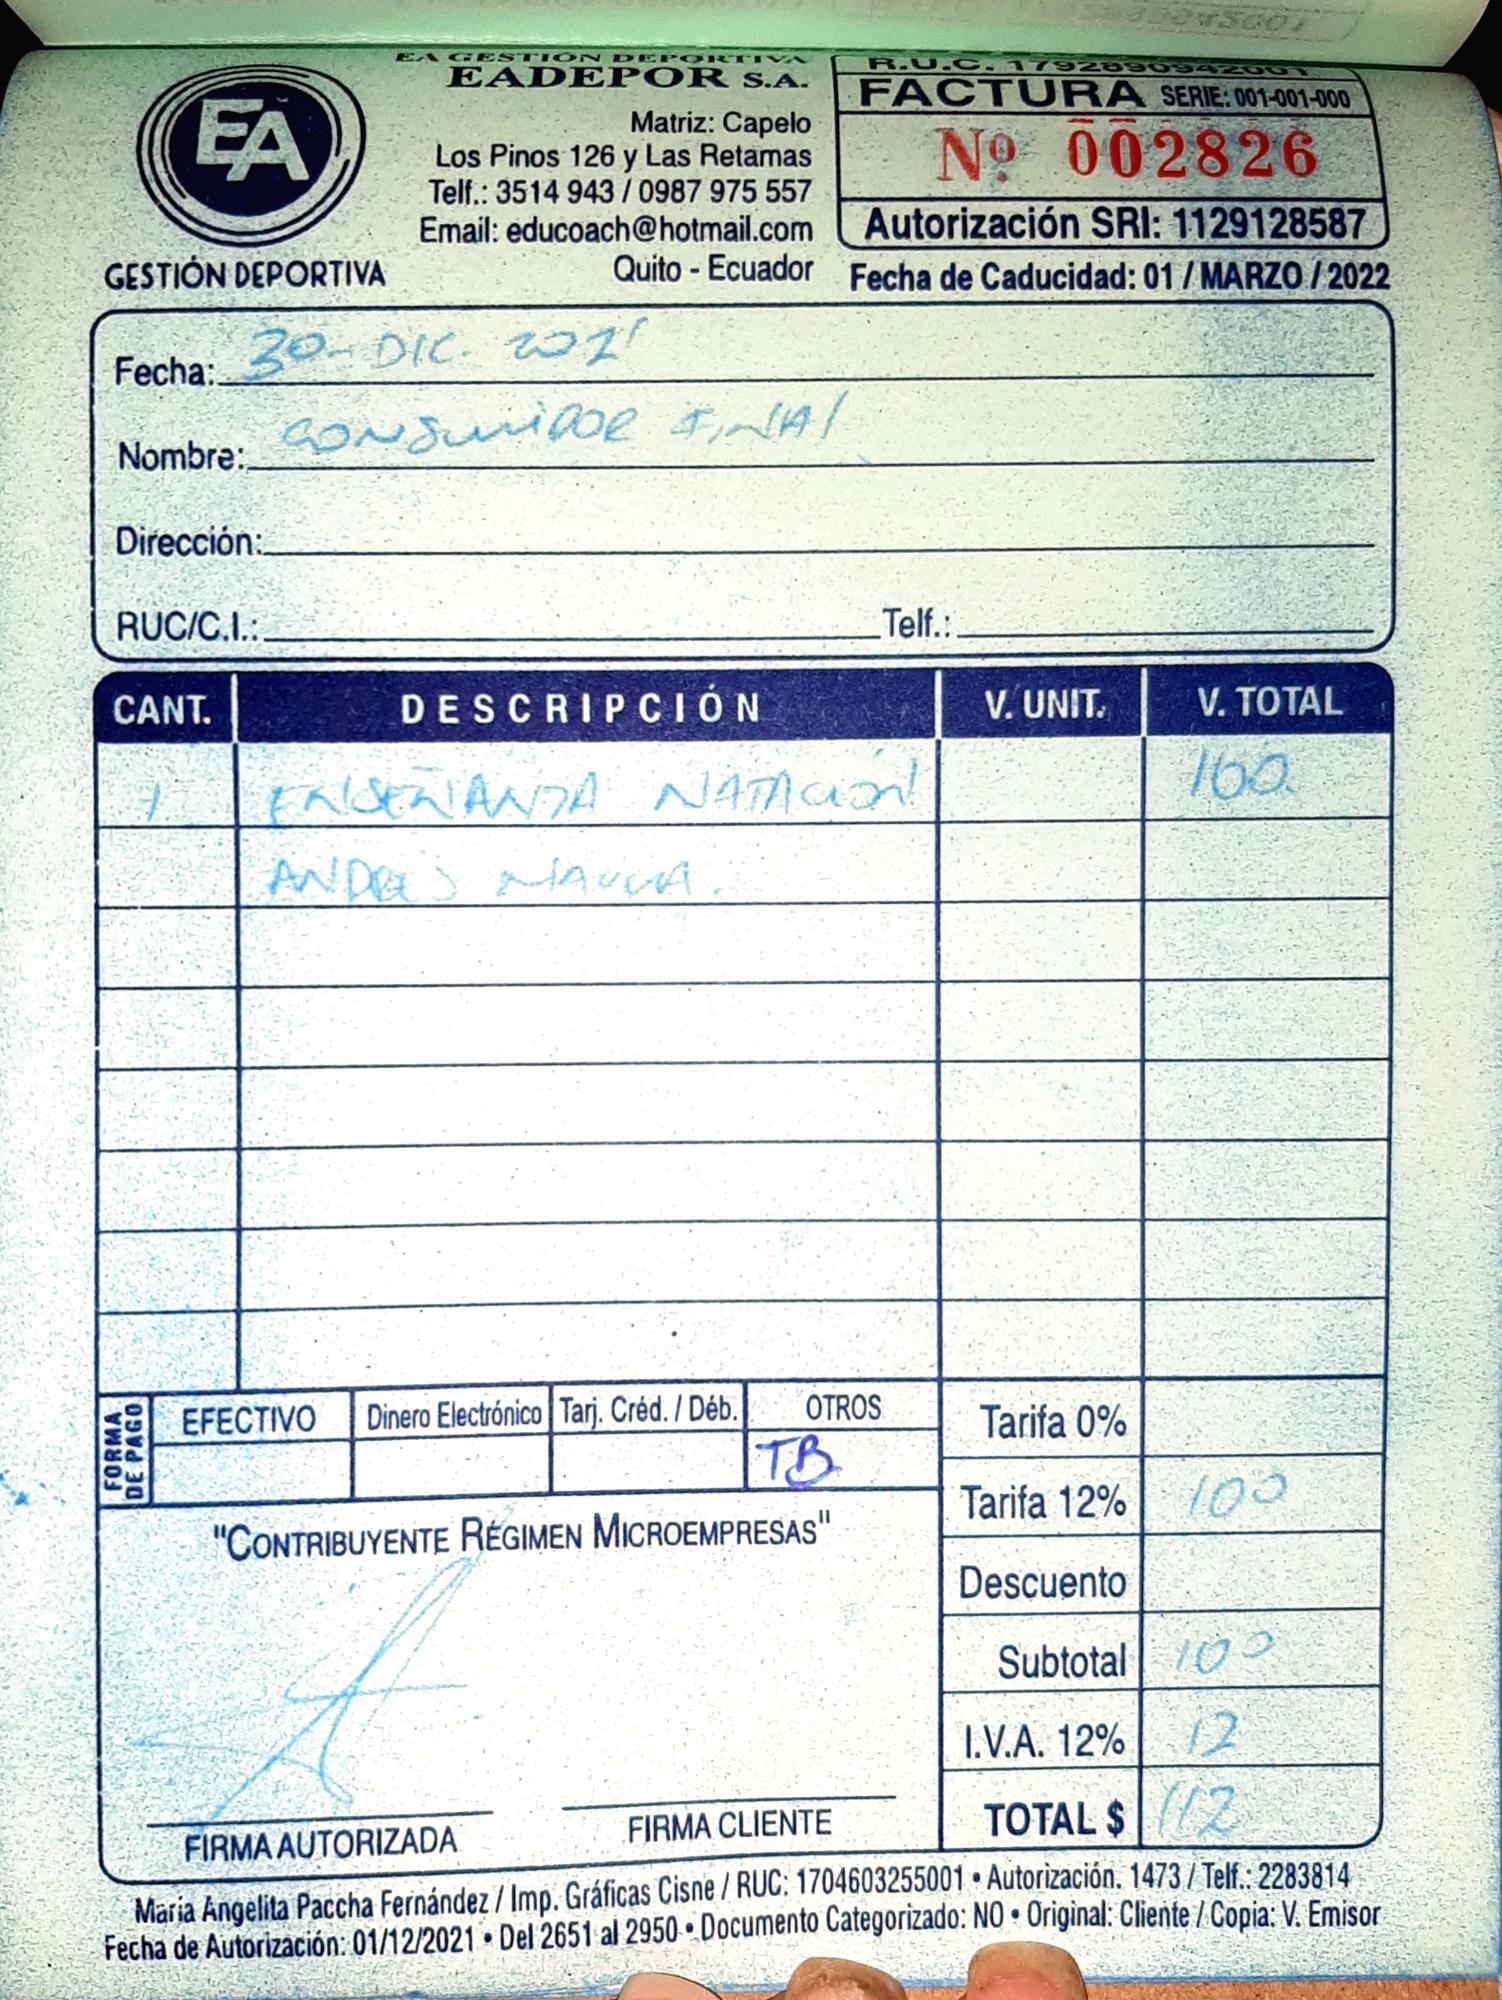 EA GESTIÓN DEPORTIVA
EADEPOR S.A.
Matriz: Capelo
Los Pinos 126 y Las Retamas
Telf.: 3514 943 / 0987 975 557
Email: educoach@hotmail.com
Quito - Ecuador
EA
GESTIÓN DEPORTIVA
R.U.C. 1792890942001
FACTURA SERIE: 001-001-000
Nº 002826
Autorización SRI: 1129128587
Fecha de Caducidad: 01 / MARZO / 2022
Fecha: 30-DIC. 2021
Nombre: CONSUMIDOR FINAl
Dirección:
RUC/C.I.: Telf.:
CANT. DESCRIPCIÓN V. UNIT. V. TOTAL
1 ENSEÑANZA NATACIÓN 100.
ANDRES
FORMA DE PAGO
EFECTIVO Dinero Electrónico Tarj. Créd. / Déb. OTROS
TB
Tarifa 0%
Tarifa 12% 100
Descuento
Subtotal 100
I.V.A. 12% 12
TOTAL $ 112
"CONTRIBUYENTE RÉGIMEN MICROEMPRESAS"
FIRMA AUTORIZADA FIRMA CLIENTE
María Angelita Paccha Fernández / Imp. Gráficas Cisne / RUC: 1704603255001 • Autorización. 1473 / Telf.: 2283814
Fecha de Autorización: 01/12/2021 • Del 2651 al 2950 • Documento Categorizado: NO • Original: Cliente / Copia: V. Emisor